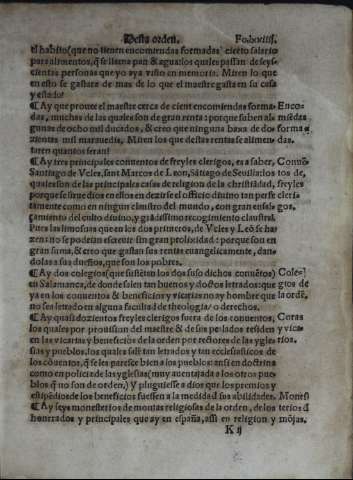 Desta orden. Fo.lxviiij.
el habito (que no tienen encomiendas formadas) cierto salario
para alimentos, q̃ se llama pan & agua: los quales passan de seys-
cientas personas que yo aya visto en memoria. Miren lo que
en esto se gastara de mas de lo que el maestre gasta en su casa
y estado!
¶ Ay que prouee el maestre cerca de cient encomiendas forma- Enco-
das, muchas de las quales son de gran renta: porque suben al- miẽdas
gunas de ocho mil ducados, & creo que ninguna baxa de do- forma
zientas mil marauedis. Miren los que destas rentas se alimen- das.
taren quantos seran!
¶ Ay tres principales conuentos de freyles clerigos, es a saber, Conuẽ
Santiago de Veles, sant Marcos de Leon, Sãtiago de Seuilla: tos de
quales son de las principales casas de religion de la christiãdad, freyles
porque se sirue dios en ellos en dezirse el officio diuino tan perfe clerigos
ctamente como en ningun claustro del mundo, con gran ensal- gos.
çamiento del culto diuino, y grãdissimo recogimiento claustral.
Pues las limosnas que en los dos primeros, de Veles y Leõ se ha
zen: no se podrian escreuir sin gran prolixidad: porque son en
gran suma, & creo que gastan sus rentas euangelicamente, dan-
dolas a sus dueños, que son los pobres.
¶ Ay dos colegios (que sustẽtan los dos suso dichos conuẽtos) Cole-
en Salamanca, de donde salen tan buenos y doctos letrados: que gios de
ya en los conuentos & beneficios y vicarias no ay hombre que la ordẽ.
no sea letrado en alguna facultad de theologia o derechos.
¶ Ay quasi dozientos freyles clerigos fuera de los conuentos, Curas
los quales por prouision del maestre & de sus perlados residen y vica-
en las vicarias y beneficios de la orden por rectores de las ygle- rios.
sias y pueblos, los quales salẽ tan letrados y tan ecclesiasticos de
los cõuentos, q̃ se les paresce bien a los pueblos: ansi en doctrina
como en policia de las yglesias (muy auentajada a los otros pue-
blos q̃ no son de orden.) Y pluguiesse a dios que los premios y
estipẽdios de los beneficios fuessen a la medida d sus abilidades. Mones
¶ Ay seys monesterios de monjas religiosas de la orden, de los terios d
honrrados y principales que ay en españa, assi en religion y mõjas.
K ij